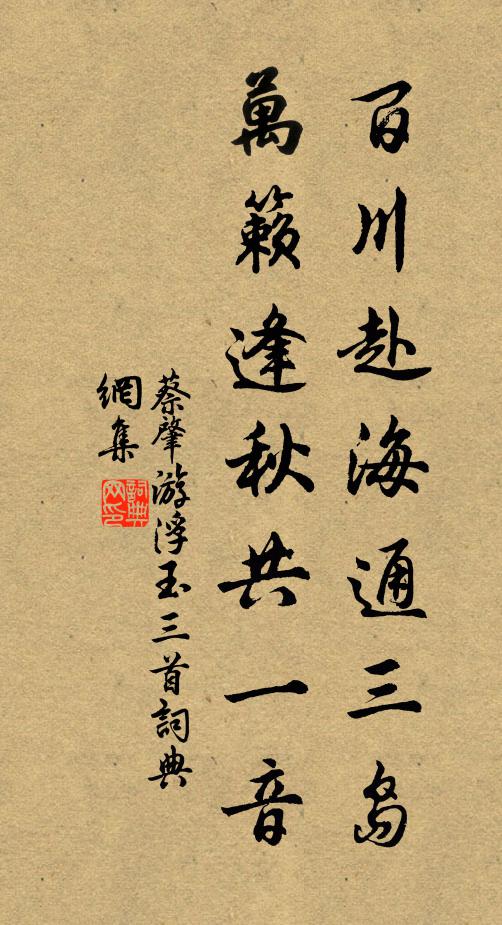 百川赴海通三島
萬籟逢秋共一音
蔡肇游浮玉三首詞典
網集
詞典
网印